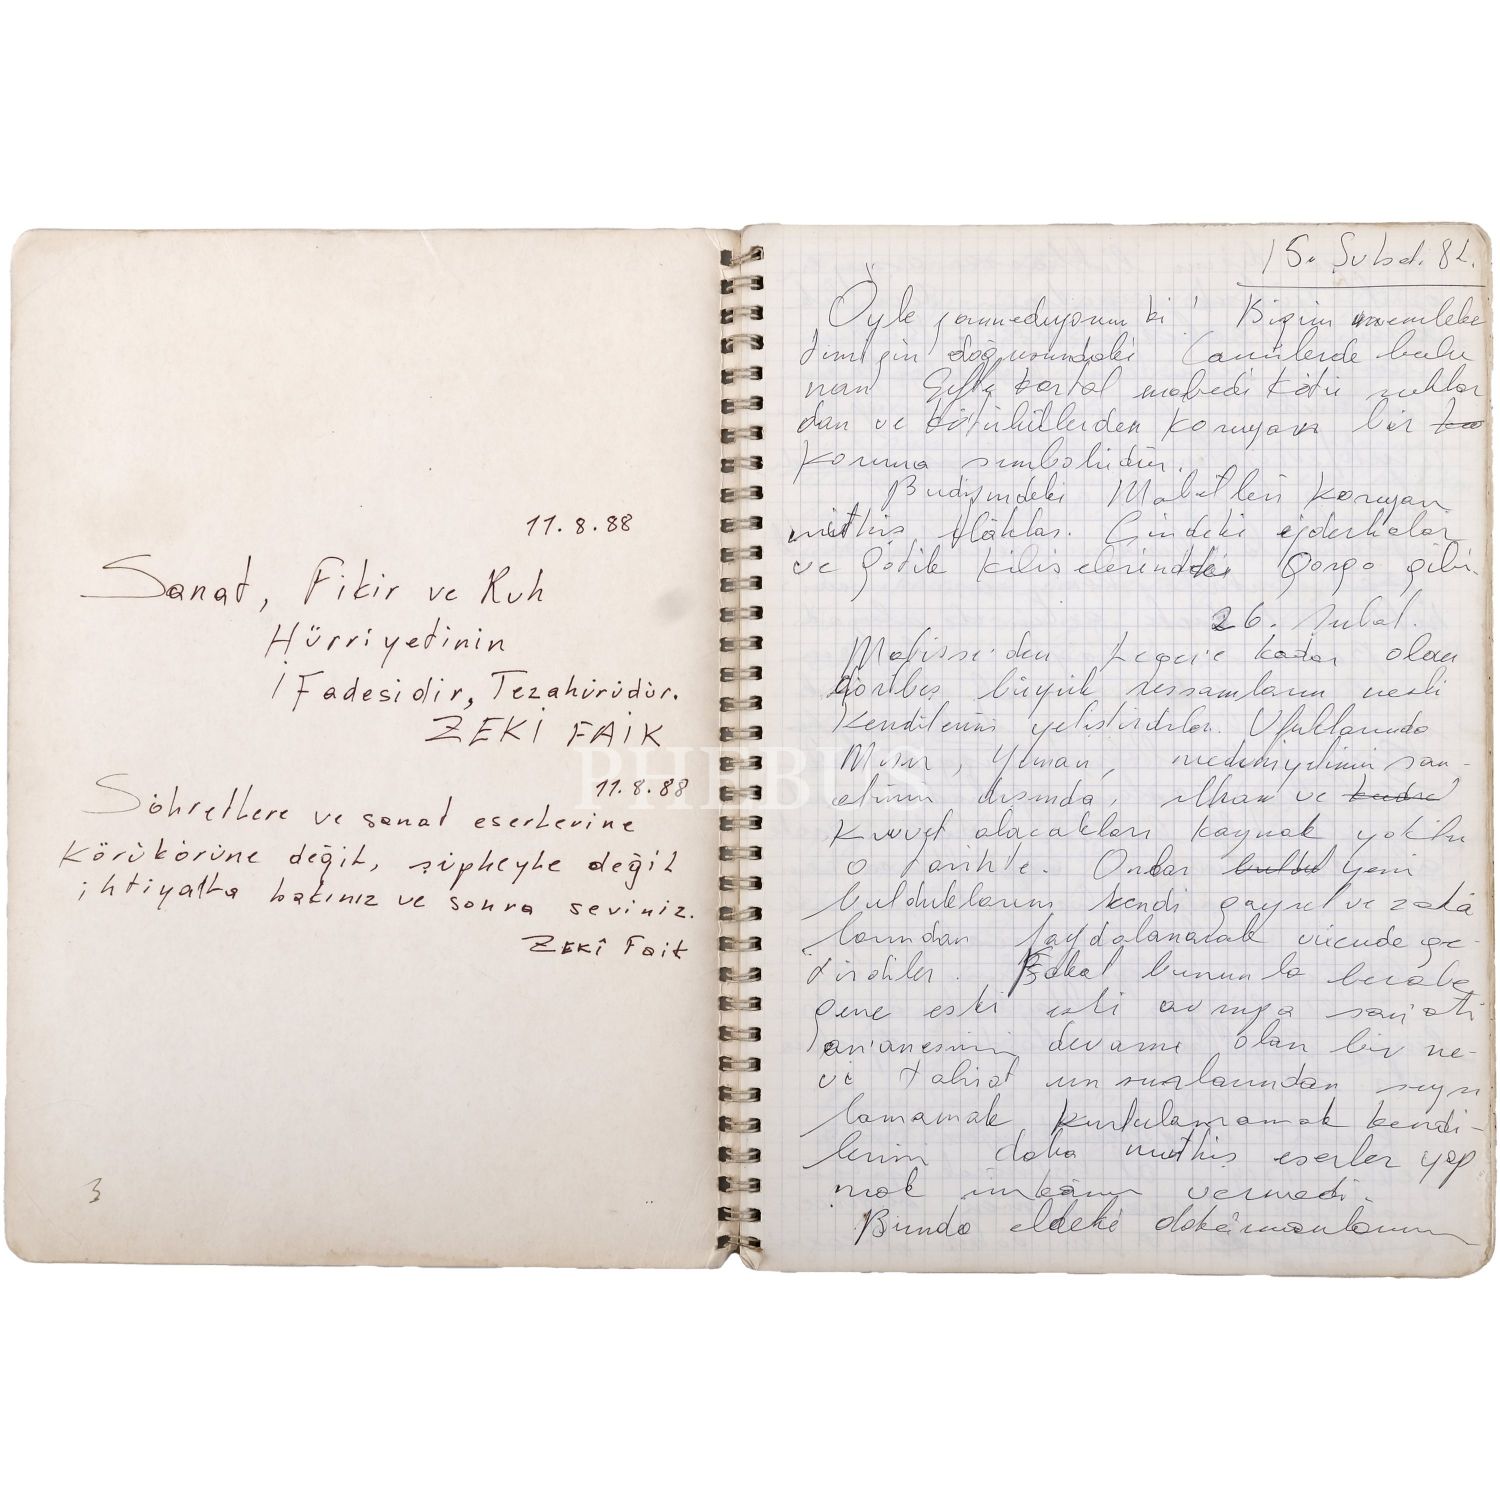 11.8.88
Sanat, Fikir ve Ruh
Hürriyetinin
İFadesidir, Tezahürüdür.
ZEKİ FAİK
11.8.88
Söhretlere ve sanat eserlerine
körükörüne değil, şüpheyle değil
ihtiyatla bakınız ve sonra seviniz.
ZEKİ Faik
3
PHEBUS
15. Şubat. 82.
Öyle zannediyorum ki! Bizim memleke
timizin doğusundaki Camilerde bulu
nan Çifte kartal kötü ruhlar
dan ve kötülüklerden koruyan bir
koruma sembolüdür.
Mabetleri koruyan
müthiş ilâhlar. Çindeki ejderhalar
ve gotik kiliselerindeki Gorgo gibi.
26. Şubat.
Matisse'den Leger'e kadar olan
dörtbeş büyük ressamların nesli
kendilerini yetiştirdiler. Ufuklarında
Mısır, Yunan, medeniyetinin san-
atının dışında, ilham ve kudret
kuvvet alacakları kaynak yoktu
o tarihte. Onlar buldu yeni
bulduklarını kendi gayret ve zekâ
larından faydalanarak vücude ge-
tirdiler. Fakat bununla beraber
gene eski avrupa san'atı
an'anesinin devamı olan bir ne-
vi tabiat unsurlarından sıyrı
lamamak kurtulamamak kendi-
lerini daha müthiş eserler yap
mak imkânı vermedi.
Bunda eldeki dokümanların